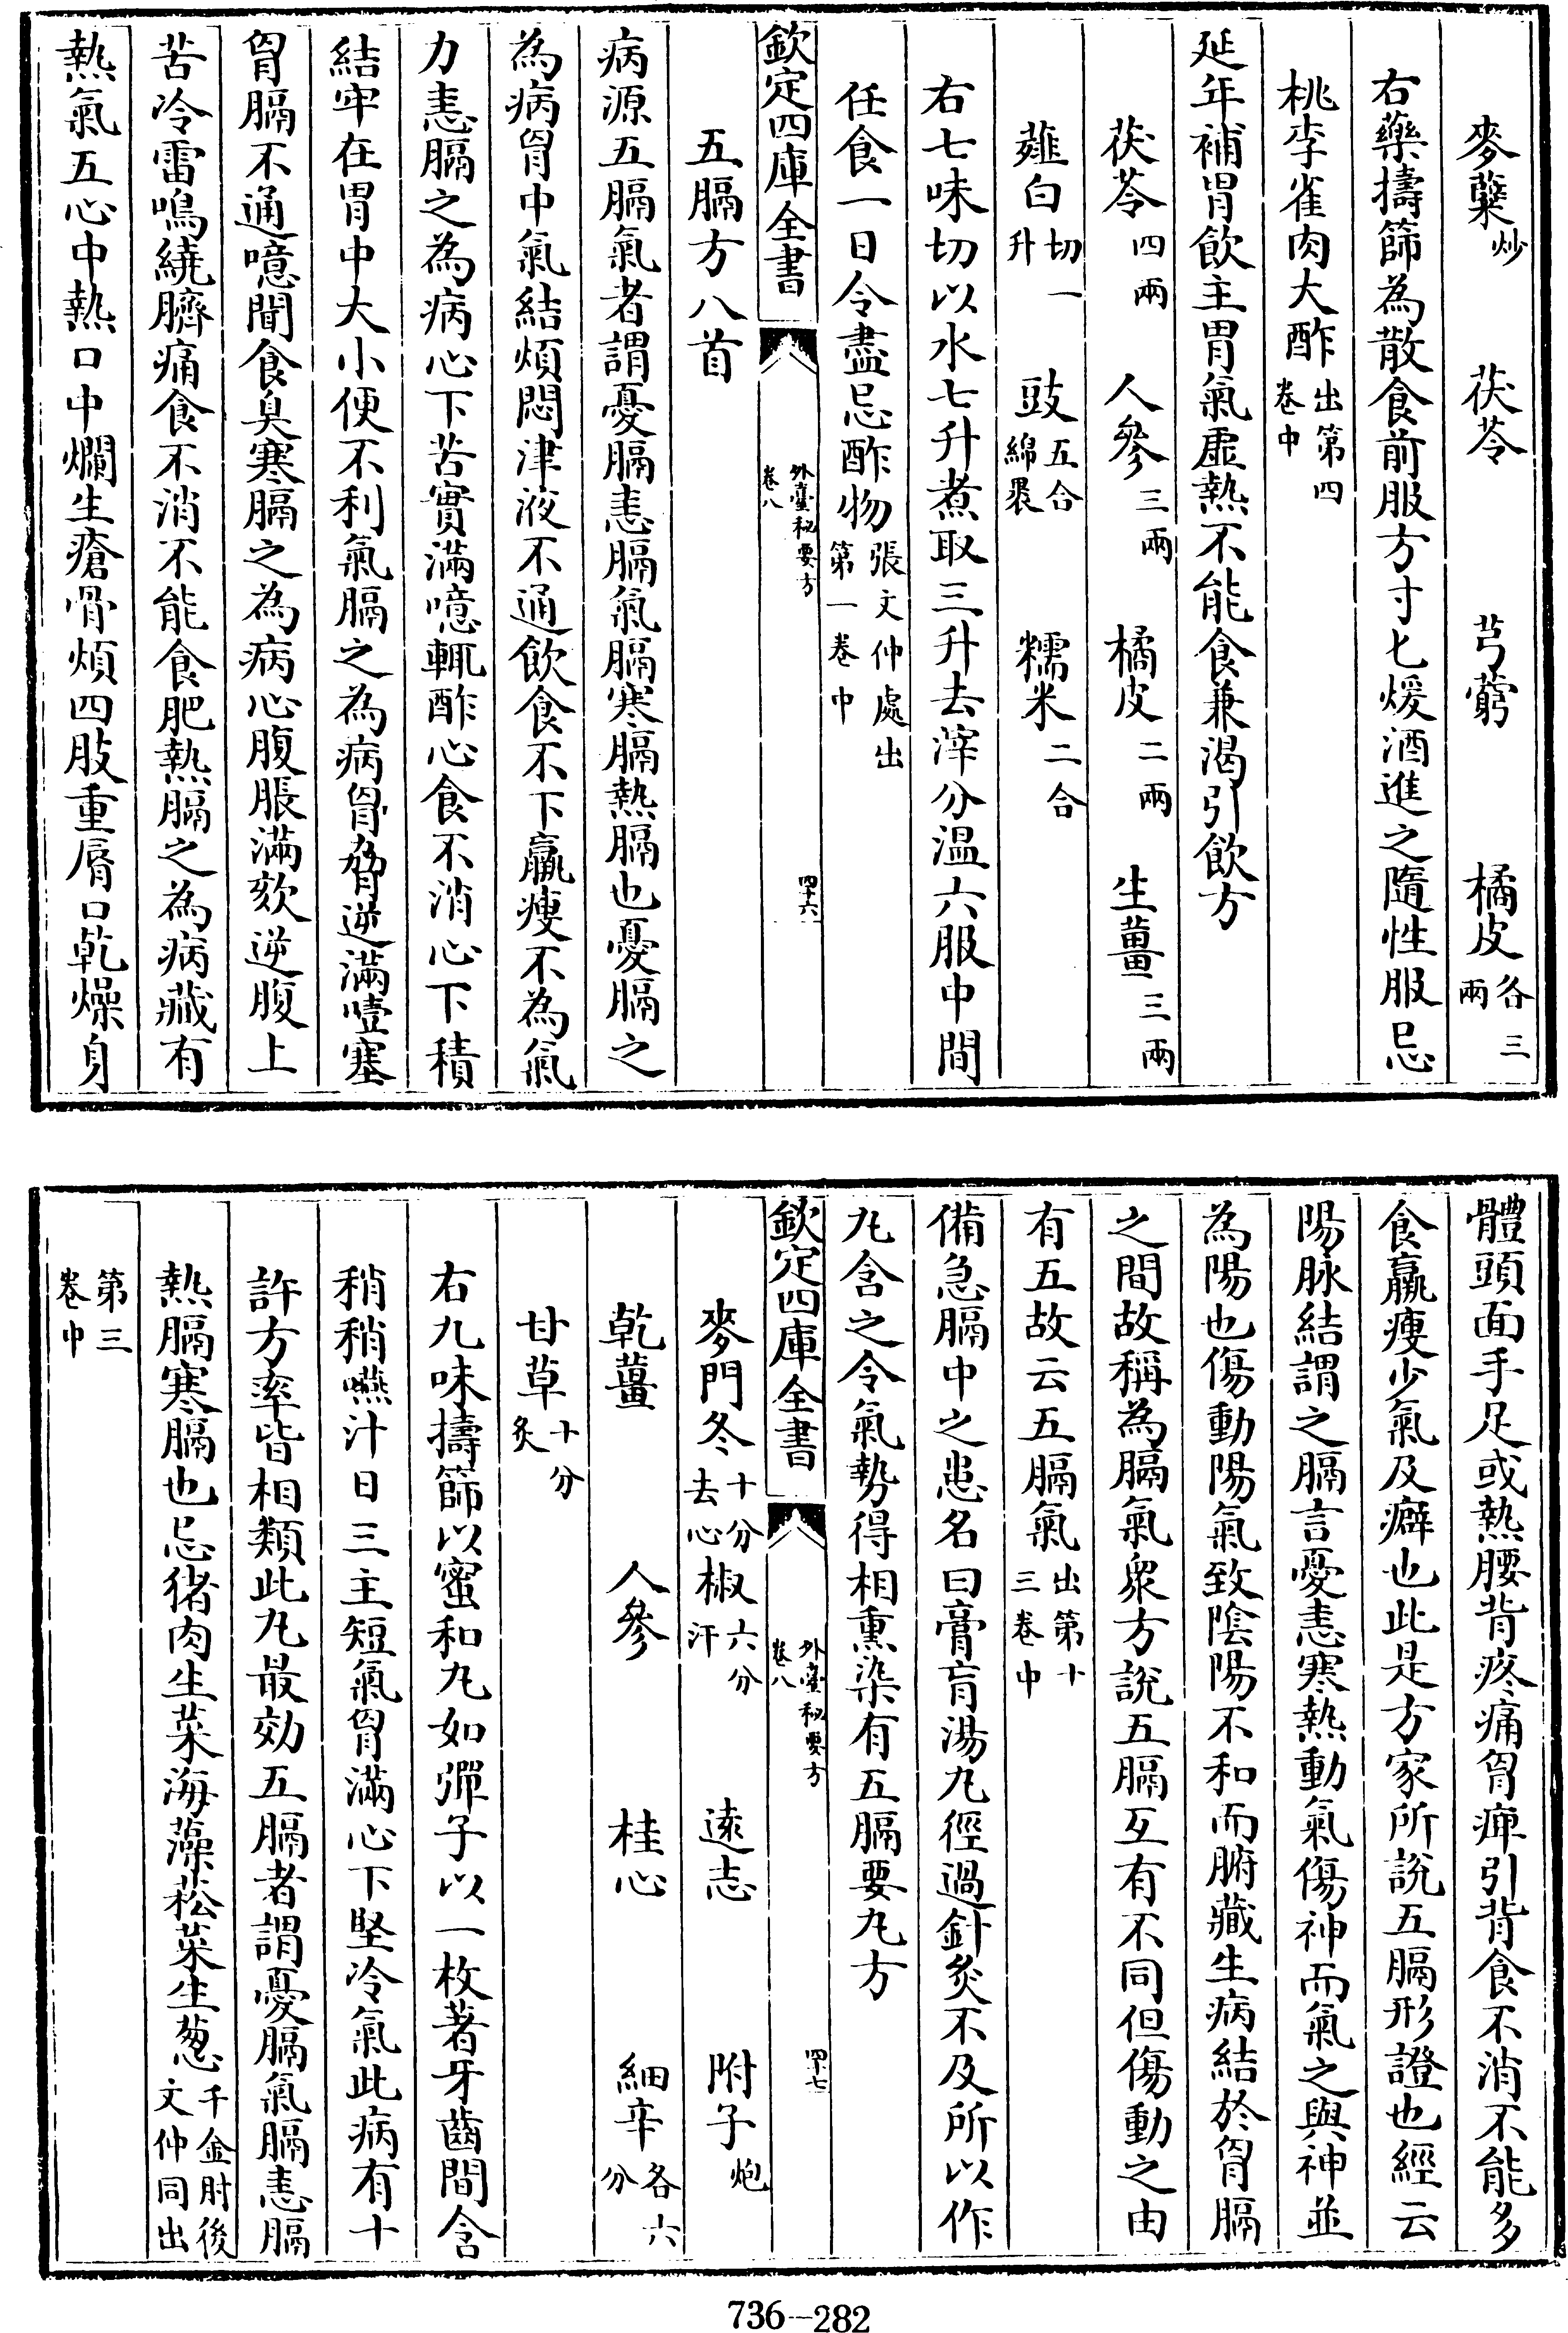 麥蘗炒　茯苓　芎藭　橘皮各三兩
右藥擣篩為散食前服方寸匕煖酒進之隨性服忌
桃李雀肉大酢出第四卷中
延年補胃飲主胃氣虛熱不能食兼渴引飲方
茯苓四兩　人參三兩　橘皮二兩　生薑三兩
薤白切一升　豉五合綿褁　糯米二合
右七味切以水七升煮取三升去滓分温六服中間
任食一日令盡忌酢物張文仲處出第一卷中
欽定四庫全書　外臺秘要方卷八　四十六
五膈方八首
病源五膈氣者謂憂膈恚膈氣膈寒膈熱膈也憂膈之
為病胷中氣結煩悶津液不通飲食不下羸瘦不為氣
力恚膈之為病心下苦實滿噫輒酢心食不消心下積
結牢在胃中大小便不利氣膈之為病胷脅逆滿噎塞
胷膈不通噫聞食臭寒膈之為病心腹脹滿欬逆腹上
苦冷雷鳴繞臍痛食不消不能食肥熱膈之為病藏有
熱氣五心中熱口中爛生瘡骨煩四肢重脣口乾燥身
體頭面手足或熱腰背疼痛胷痺引背食不消不能多
食羸瘦少氣及癖也此是方家所說五膈形證也經云
陽脉結謂之膈言憂恚寒熱動氣傷神而氣之與神並
為陽也傷動陽氣致陰陽不和而腑藏生病結於胷膈
之間故稱為膈氣衆方說五膈互有不同但傷動之由
有五故云五膈氣出第十三卷中
備急膈中之患名曰膏肓湯丸徑過針灸不及所以作
丸含之令氣勢得相熏染有五膈要丸方
欽定四庫全書　外臺秘要方卷八　四十七
麥門冬十分去心　椒六分汗　遠志　附子炮
乾薑　人參　桂心　細辛各六分
甘草十分炙
右九味擣篩以蜜和丸如彈子以一枚著牙齒間含
稍稍嚥汁日三主短氣胷滿心下堅冷氣此病有十
許方率皆相類此丸最効五膈者謂憂膈氣膈恚膈
熱膈寒膈也忌猪肉生菜海藻菘菜生葱千金肘後文仲同出
第三卷中
736—282